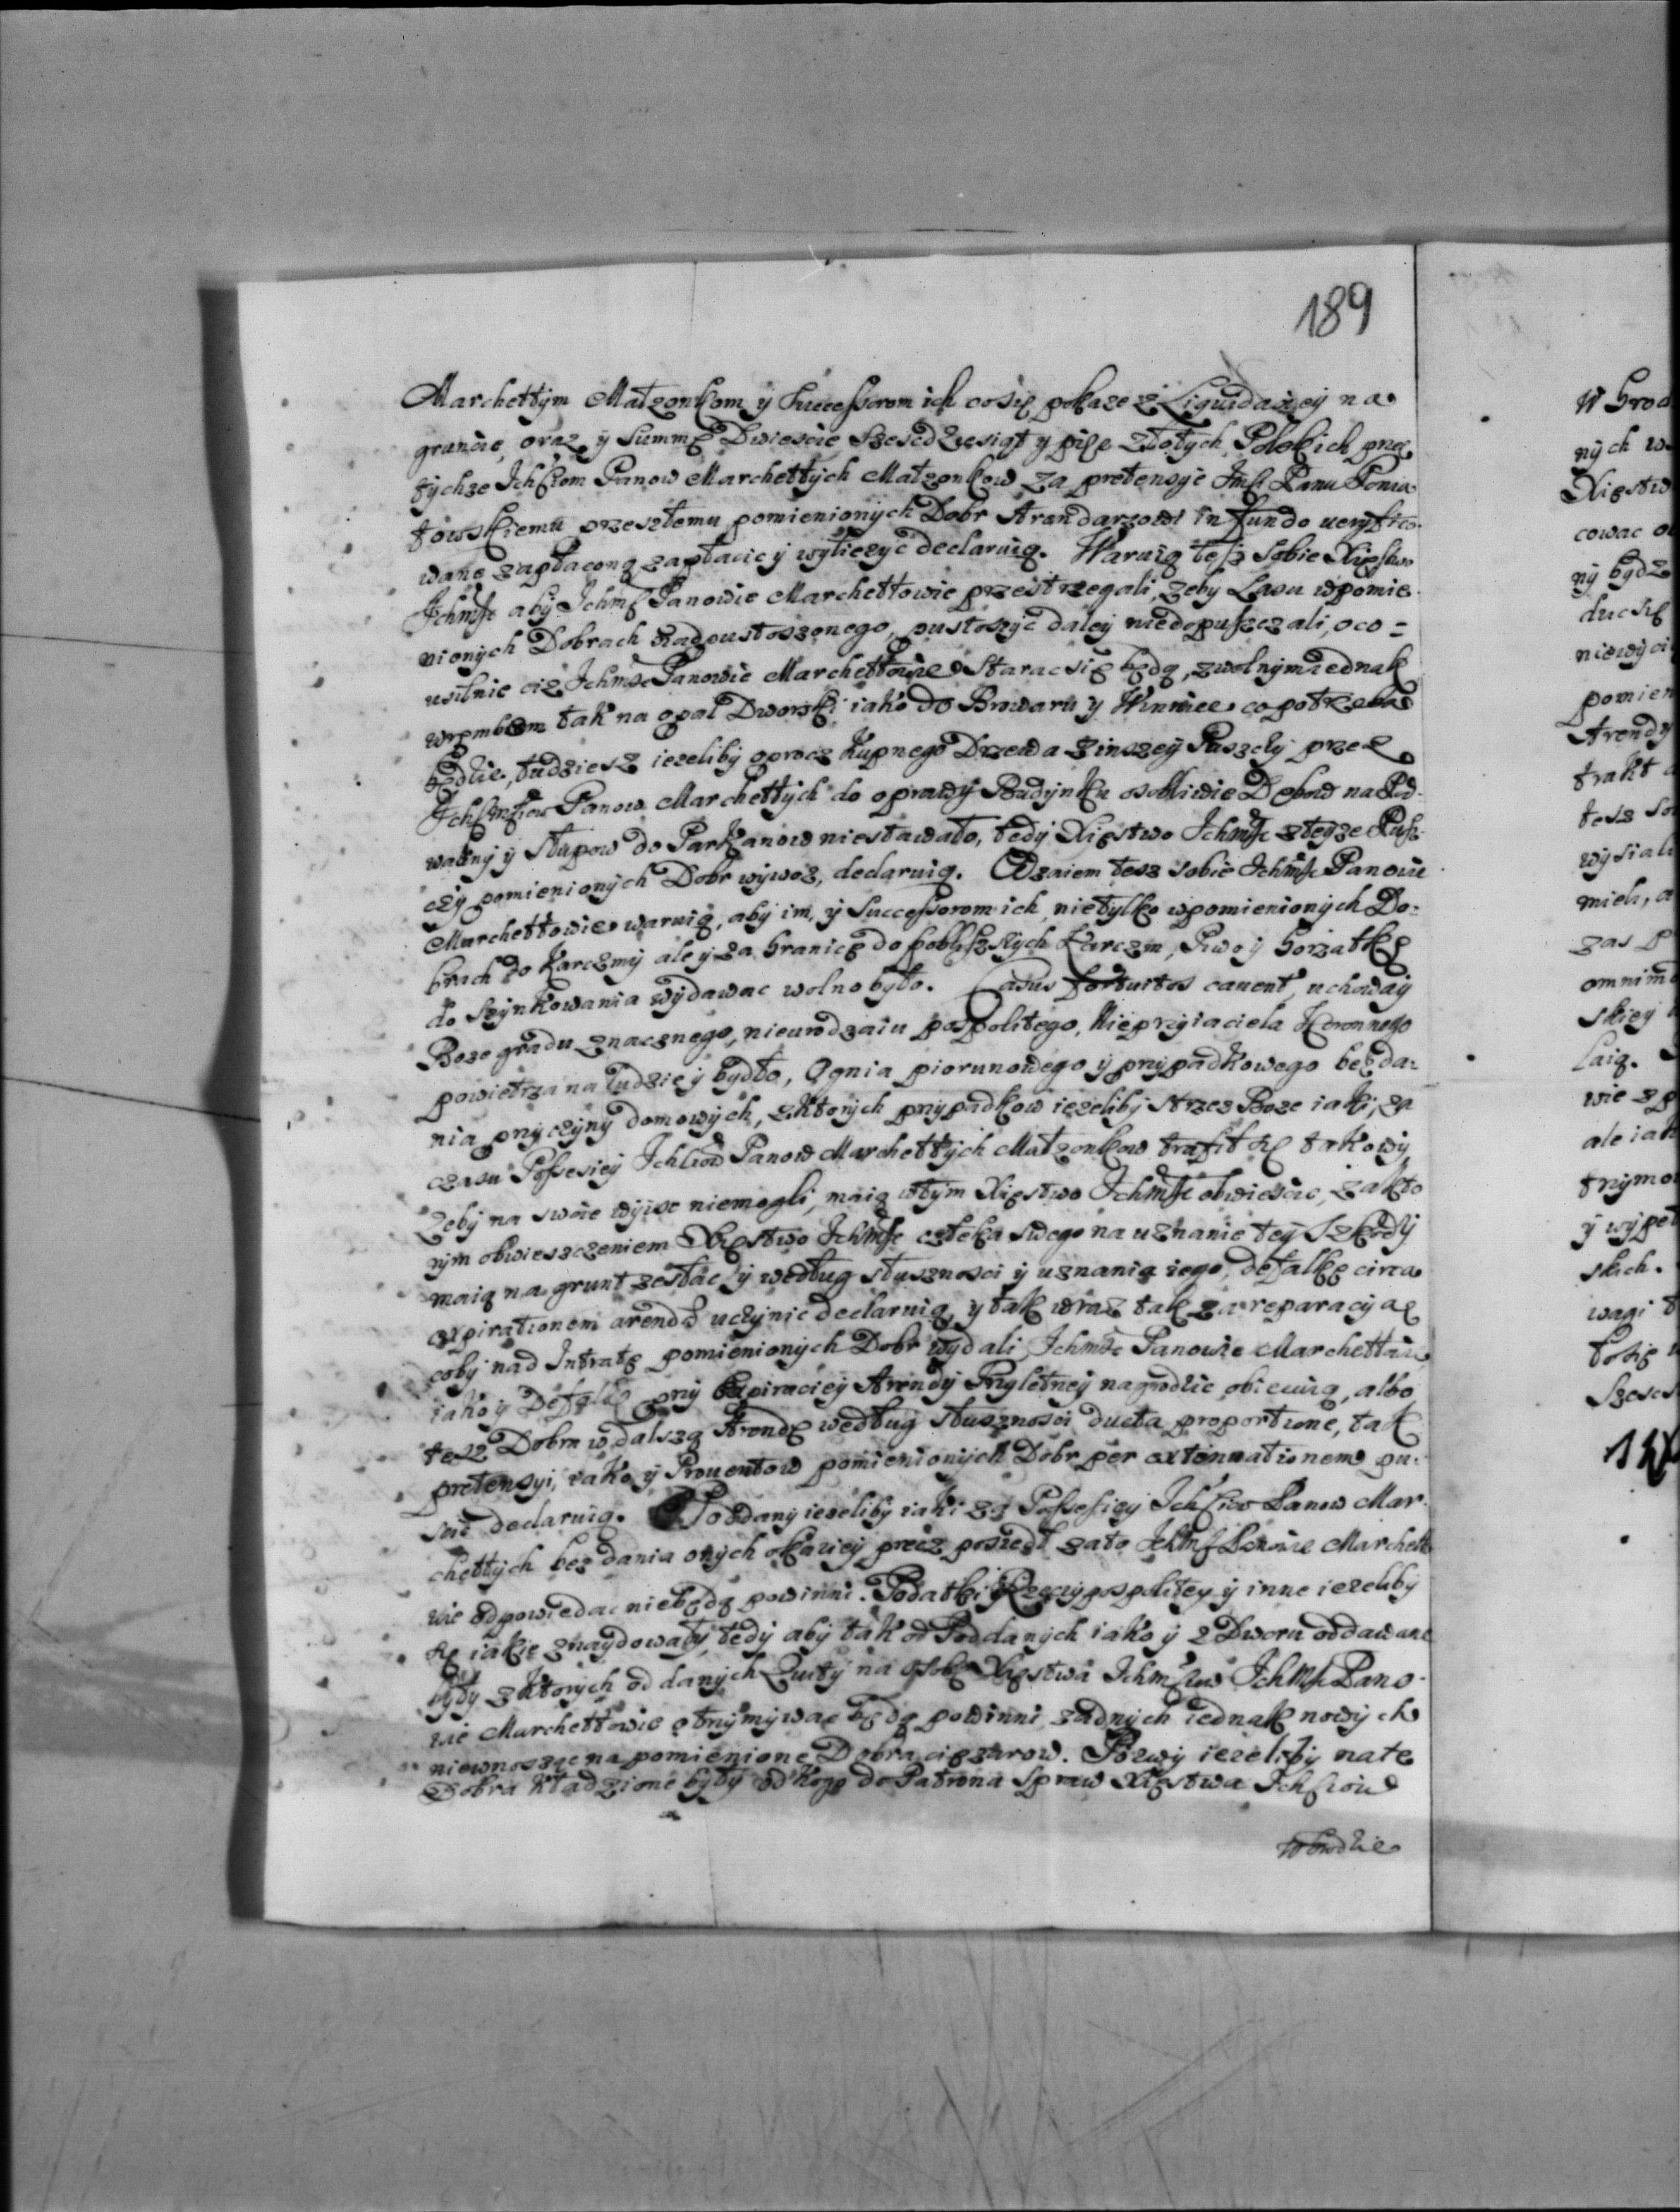 189
Marchettym Małzonkom y Successorom ich co się pokaze z Liquidacyey na
gruncie, oraz y Summę Dwiescie Szescdziesiąt y pięc złotych Polskich przez
tychze Ichmciow Panow Marchettych Małzonkow za pretensye Jmsci Panu Ponia-
towskiemu przeszłemu pomienionych Dobr Arandarzowi in fundo weryfico-
waną zapłaconą zapłacic y wyliczyc declaruią. Waruią tesz sobie Xięstwo
Ichmsc aby Ichmsc Panowie Marchettowie przestrzegali, zeby Lasu w pomie-
nionych Dobrach nad pustoszonego, pustoszyc daley nie dopuszczali, oco =
usilnie ciz Ichmsc Panowie Marchettowie starac się będą, z wolnym iednak
wrębem tak na opał Dworski iako do Browaru y Winnice co potrzeba
będzie, tudziesz iezeliby oprocz kupnego Drzewa z inszey Puszczy przez
Ichmciow Panow Marchettych do oprawy Budynku osobliwie Dębow na Pod-
waliny y słupow do Parkanow nie stawało, tedy Xięstwo Ichmsc z teyze Pusz-
czy pomienionych Dobr wywoz, declaruią. Wzaiem tesz sobie Ichmsc Panowie
Marchettowie waruią, aby im, y Successorom ich, nie tylko w pomienionych Do-
brach do karczmy ale y za Granicę do pobliszszych Karczm, Piwo y Gorzałkę
do Szynkowania wydawac wolno było. Casus fortuitos cavent, uchoway
Boze gradu znacznego, nieurodzaiu pospolitego, Nieprzyiaciela Koronnego
powietrza na ludzie y bydło, Ognia piorunowego y przypadkowego bez da-
nia przyczyny domowych, z ktorych przypadkow iezeliby strzez Boze iaki, za
czasu Possesiey Ichmciow Panow Marchettych Małzonkow trafił się takowy
zeby na swoie wyisc niemogli, maią w tym Xięstwo Ichmsc obwiescic, za kto-
rym obwieszczeniem Xięstwo Ichmsc człeka swego na uznanie tey szkody
maią na grunt zesłac y według słusznosci y uznania iego, defalkę circa
expirationem arendy uczynic declaruią, y tak wraz tak za reparacyą
coby nad Intratę pomienionych Dobr wydali Ichmsc Panowie Marchettowie
iako y Defalkę przy Expiraciey Arendy Trzyletney nagrodzic obiecuią, albo
tesz Dobra w dalszą Arendę według słusznosci ducta proportione, tak
pretensyi, iako y Prouentow pomienionych Dobr per extenuationem pu-
scic declaruią. Poddany iezeliby iaki za Possesiey Ichmciow Panow Mar-
chettych bez dania onych okaziey precz poszedł za to Ichmsc Panowie Marchetto
wie odpowiedac nie będą powinni. Podatki Rzeczypospolitey y inne iezeliby
się iakie znaydowały, tedy aby tak od Poddanych iako y z Dworu oddawane
były z ktorych oddanych Quity na osobę Xięstwa Ichmciow Ichmsc Pano-
wie Marchettowie otrzymywac będą powinni zadnych iednak nowych
niewnosząc na pomienione Dobra cięzarow. Pozwy iezeliby na te
Dobra kładzione były od kogo do Patrona Spraw Xięstwa Ichmciow
w Grodzie
W Grod
nych w
Xięstw
cowac
ny będz
niewyci
pomien
Arendy
trakt
tesz
wysiali
mieli, a
zas
omnimo
skiey
ale iak
trzymo
y wypeł
skich.
wagi